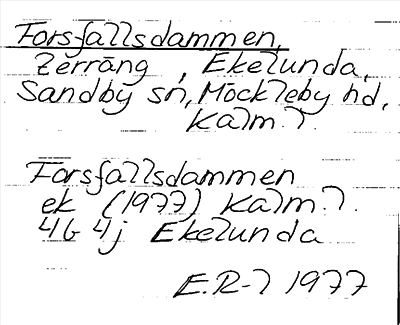 Forsfallsdammen,
Zerräng, Ekelunda,
Sandby sn, Möckleby hd,
Kalm. l.
Forsfallsdammen
ek (1977) Kalm. l.
4G 4j Ekelunda
E.R-l 1977